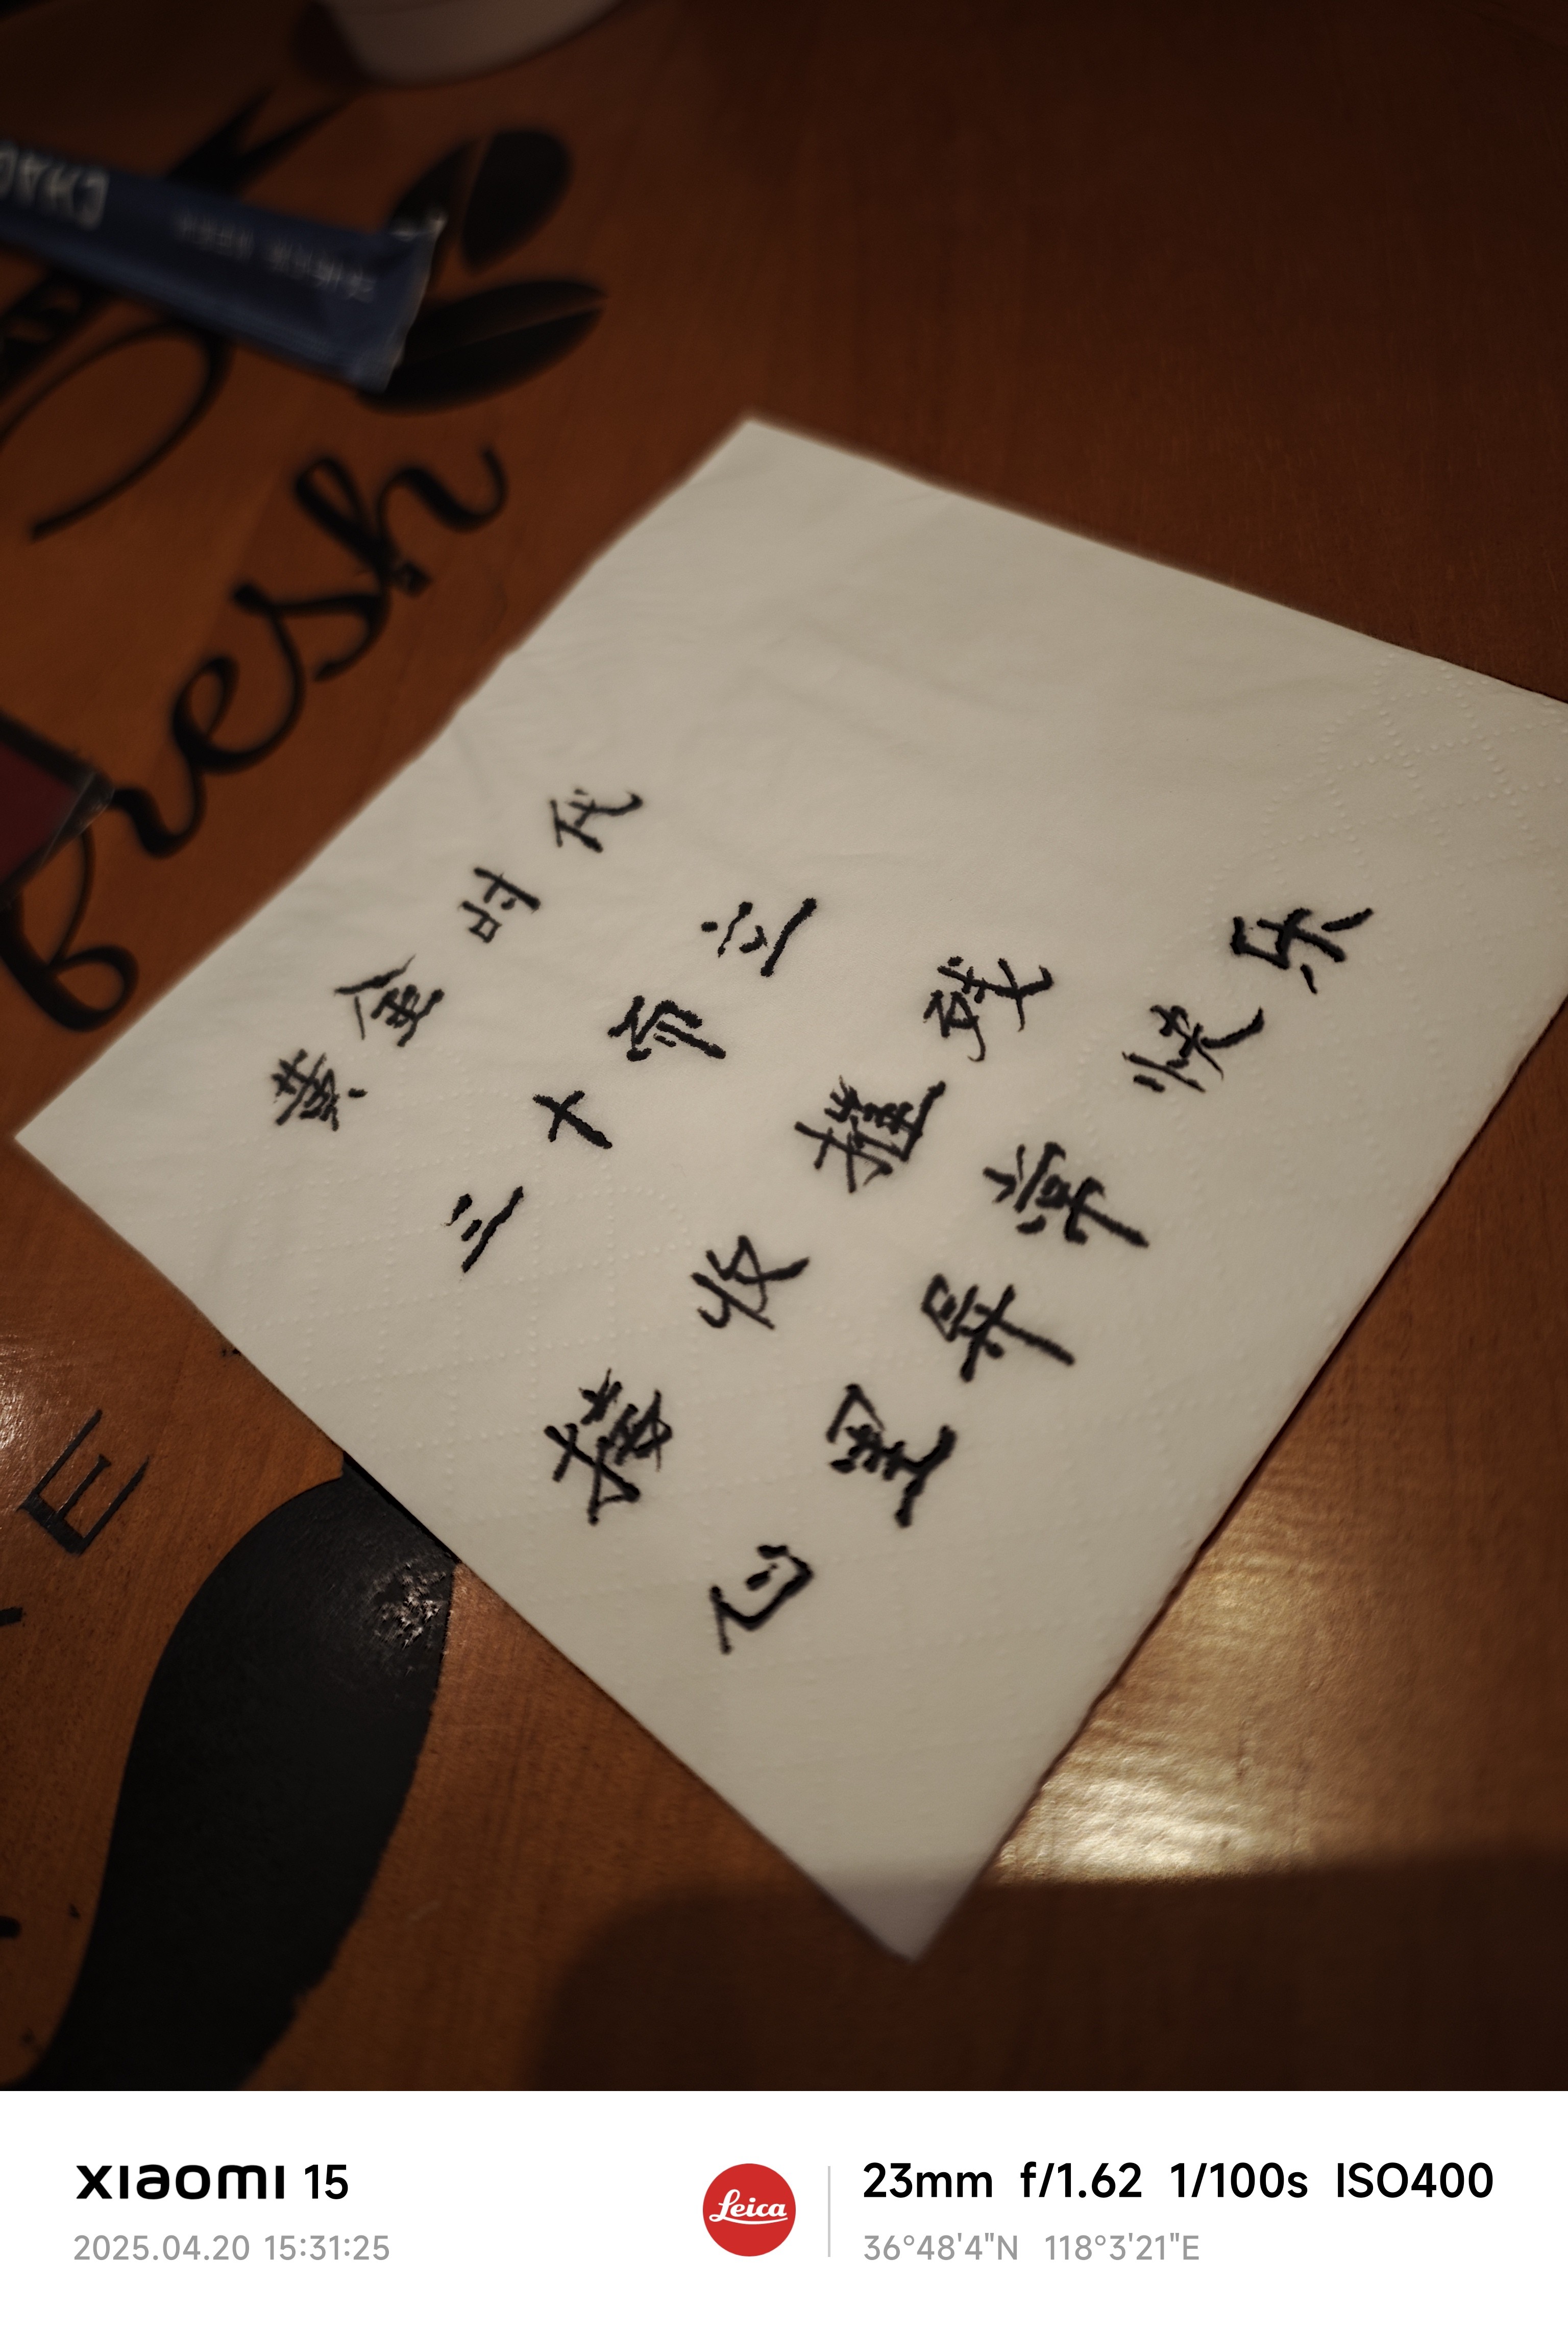 黄金时代
三十而立
接收摧残
心里异常快乐
fresh
E
xiaomi 15
2025.04.20 15:31:25
Leica
23mm f/1.62 1/100s ISO400
36°48'4"N 118°3'21"E